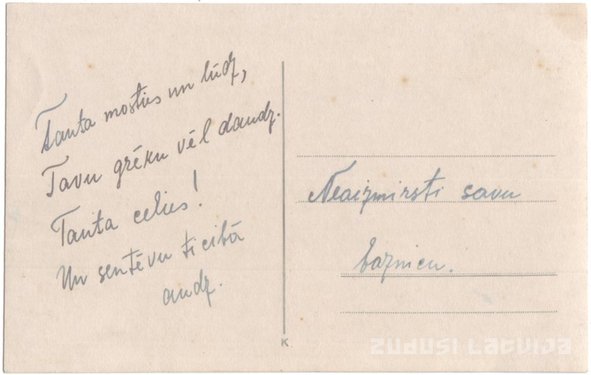 Tauta mosties un lūdz,
Tavu grēku vēl daudz.
Tauta celies!
Un sentēvu ticībā
audz.
Neaizmirsti savu
baznicu.
K
zudusi Latvija